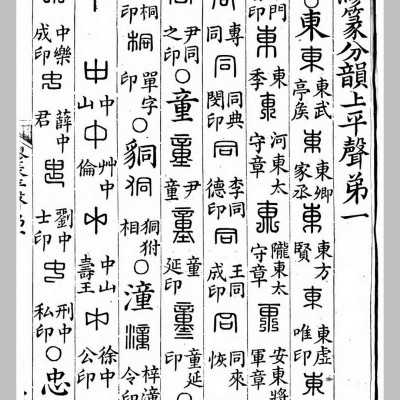 繆篆分韻上平聲弟一
○東東東武亭矦東東鄉家丞東東方賢東東虛唯印東
門印東東季東河東太守章東隴東太守章東安東將軍章
專同同同典閔印同李同德印同王同成印同同來恢
尹同之印○童童尹童童童延印童童延印
桐印桐單字印○狪狪相○潼潼梓潼令印
中中中山中艸中倫中中山壽王中徐中公印
中樂成印中薛中君中劉中士印中刑中私印○忠